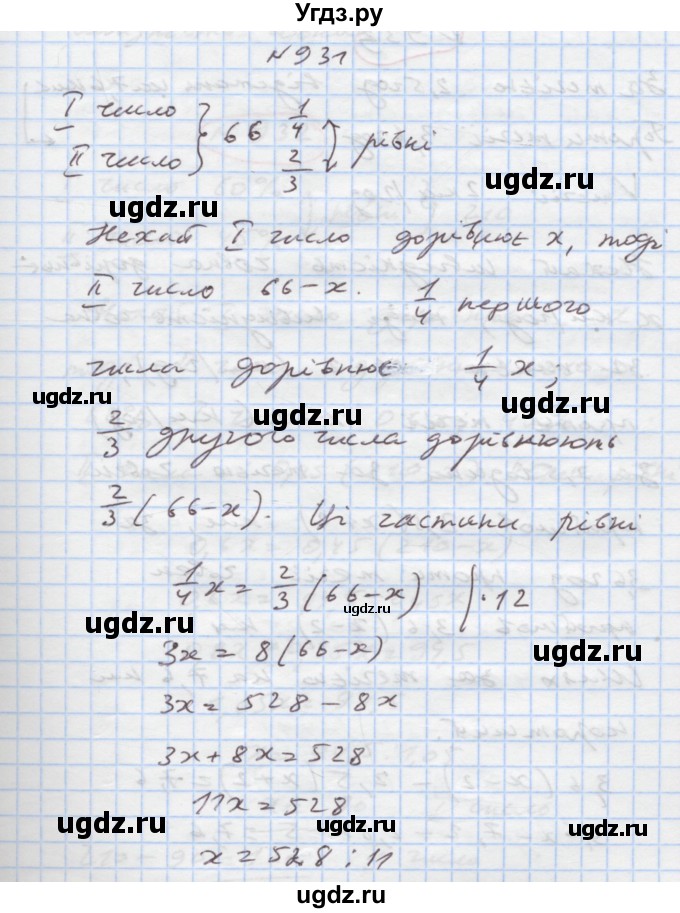 Угдз.ру
№931
I число } 66 1/4 } рівні
II число } 2/3
ugdz.ru ugdz.ru
Нехай I число дорівнює x, тоді
II число 66-x. 1/4 першого
ugdz.ru ugdz.ru
числа дорівнює 1/4 x;
ugdz.ru ugdz.ru ugdz.ru
2/3 другого числа дорівнюють
2/3 (66-x). Ці частини рівні
ugdz.ru ugdz.ru
1/4 x = 2/3 (66-x) | ·12
ugdz.ru
ugdz.ru ugdz.ru
3x = 8(66-x)
3x = 528 - 8x
ugdz.ru ugdz.ru
3x + 8x = 528
11x = 528
ugdz.ru ugdz.ru
x = 528 : 11
ugdz.ru